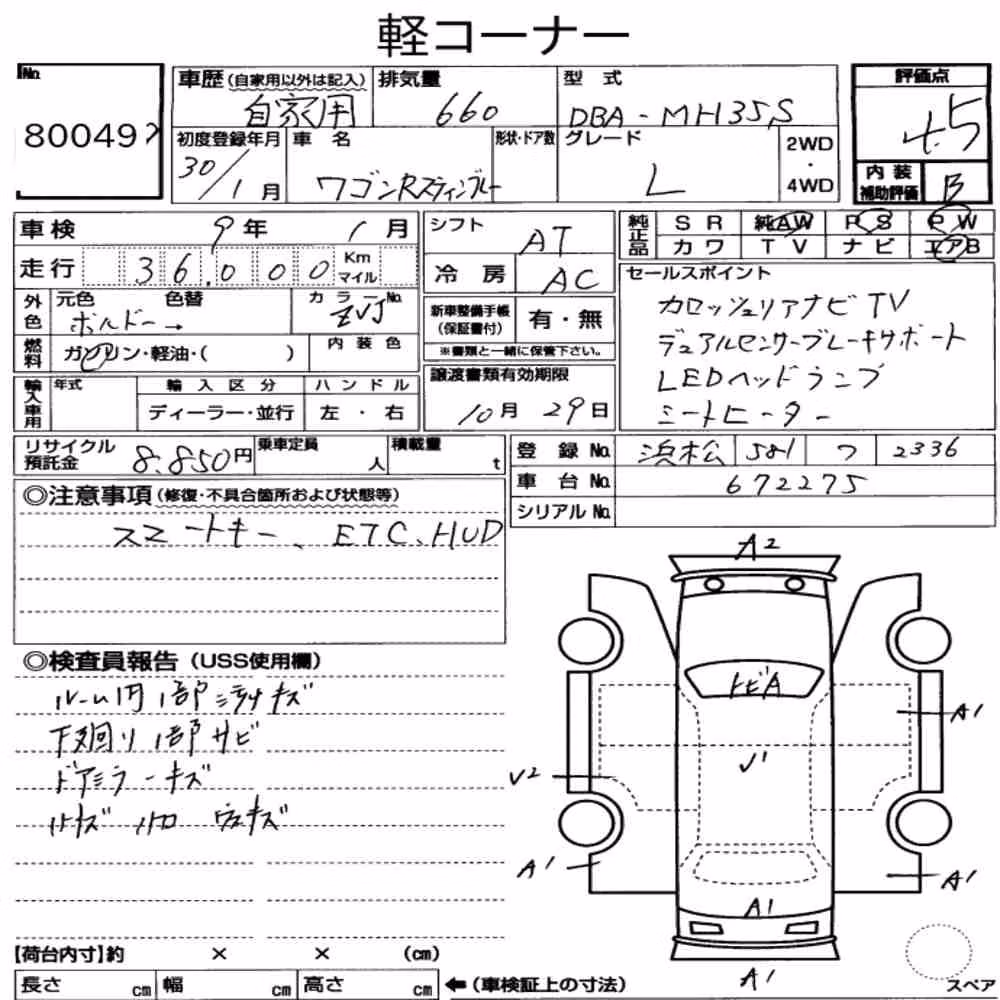 軽コーナー
No.
80049
車歴 (自家用以外は記入) 排気量 型式 評価点
自家用 660 DBA-MH35S 4.5
初度登録年月 車名 形状・ドア数 グレード 2WD・4WD
30/1月 ワゴンRスティングレー L
内装補助評価 B
車検 9年 1月 シフト AT
純正品 SR 純AW PS PW
カワ TV ナビ エアB
走行 36,000 Km マイル 冷房 AC
セールスポイント
カロッツェリアナビTV
デュアルセンサーブレーキサポート
LEDヘッドランプ
シートヒーター
外色 元色 色替 カラーNo.
ボルドー→ ZVJ
新車整備手帳(保証書付) 有・無
※書類と一緒に保管下さい。
燃料 ガソリン・軽油・( ) 内装色
輸入車用 年式 輸入区分 ハンドル
ディーラー・並行 左・右
譲渡書類有効期限
10月 29日
リサイクル預託金 8,850円 乗車定員 人 積載量 t
登録No. 浜松 581 ワ 2336
車台No. 672275
シリアルNo.
◎注意事項(修復・不具合箇所および状態等)
スマートキー、ETC、HUD
◎検査員報告(USS使用欄)
ルーム内 1部 キズ
下廻り 1部 サビ
ドアミラーキズ
A2
トビA
A1
V1
V2
A1
A1
A1
A1
【荷台内寸】約 × × (cm)
長さ cm 幅 cm 高さ cm ←(車検証上の寸法)
スペア